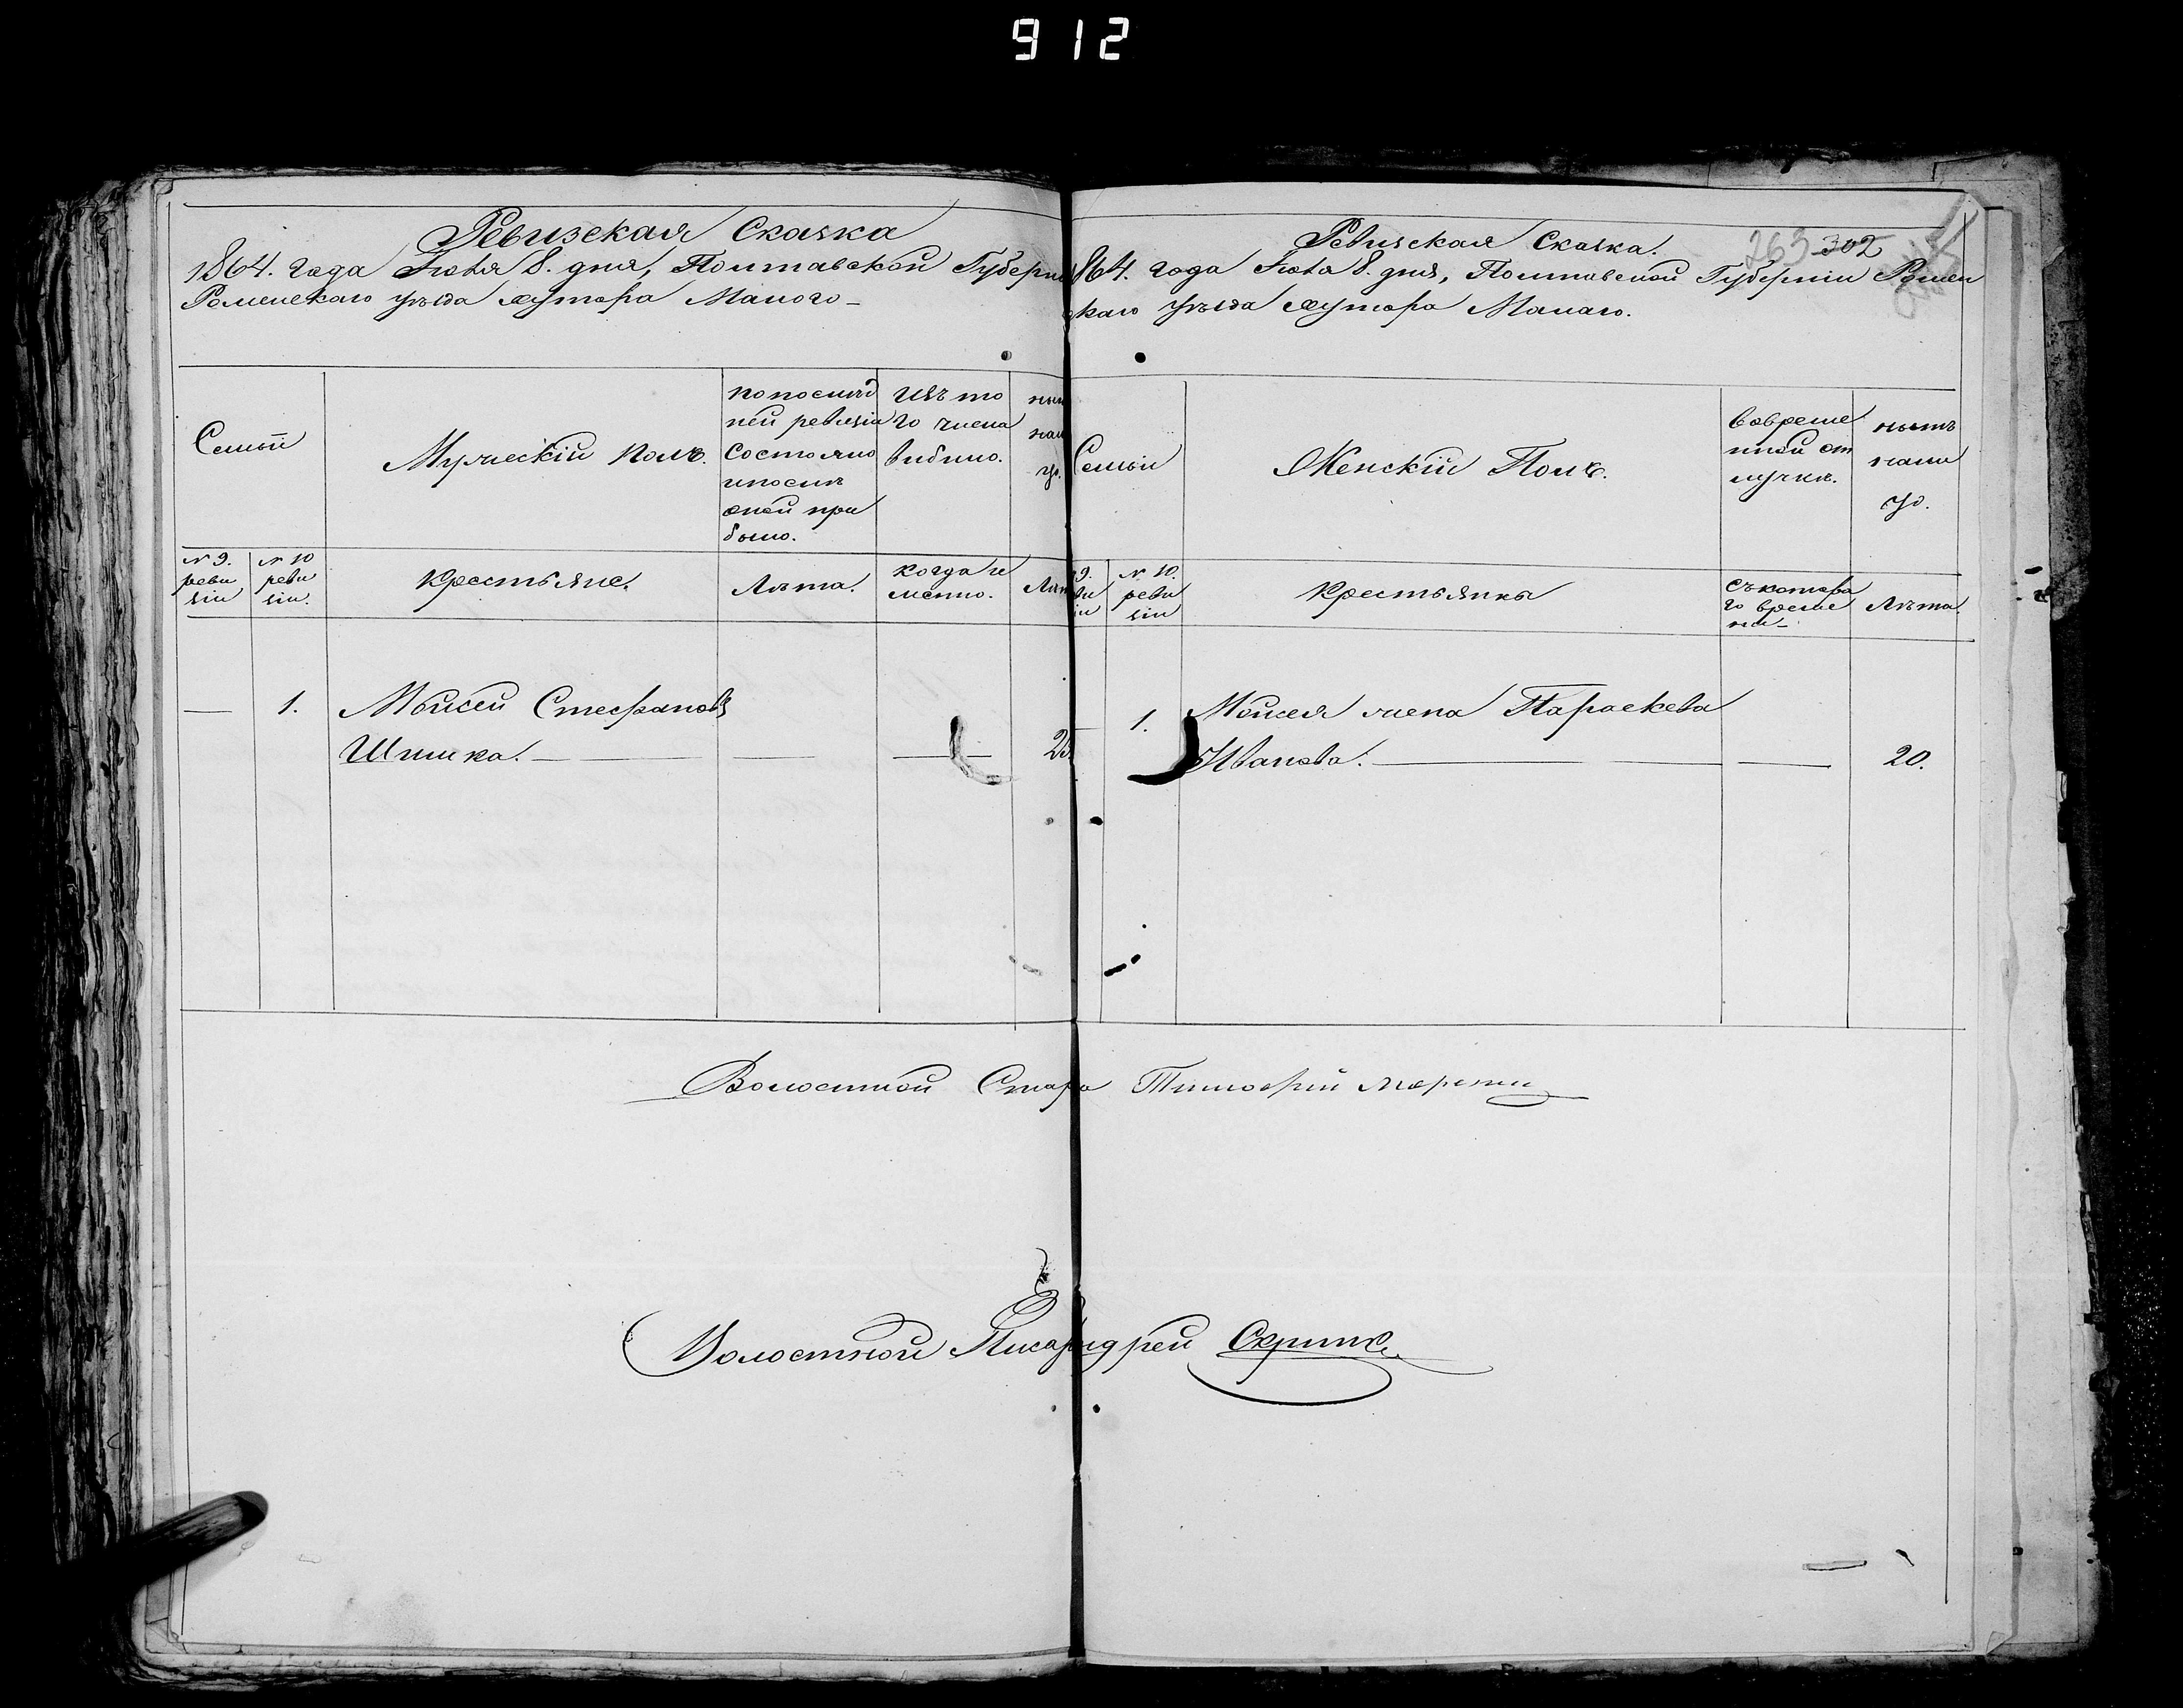 912
Ревизская Сказка
1864. года Іюля 8. дня, Полтавской Губерніи
Роменскаго уѣзда хутора Малого
Семьи
Мужескій полъ.
попослѣд
ней ревизіи
Состояло
ипослѣ
оной при
было.
Изъ то
го числа
выбыло.
нын
нали
цо.
№ 9.
реви
зіи
№ 10
реви
зіи.
Крестьяне.
Лѣта.
когда и
менно.
Лѣт
1.
Мойсей Стефановъ
Шпика.
25
263 302
Ревизская Сказка.
1864. года Іюля 8. дня, Полтавской Губерніи Ромен
скаго уѣзда хутора Малаго.
Семьи
Женскій Полъ.
Вовреме
нной от
лучкѣ.
нынѣ
нали
цо.
9.
ви
іи
№ 10.
реви
зіи
Крестьянки
Съкотора
го време
ни
Лѣта.
1.
Мойсея жена Параскева
Иванова.
20.
Волостной Стар Тимофій
Волостной Писар ндрей